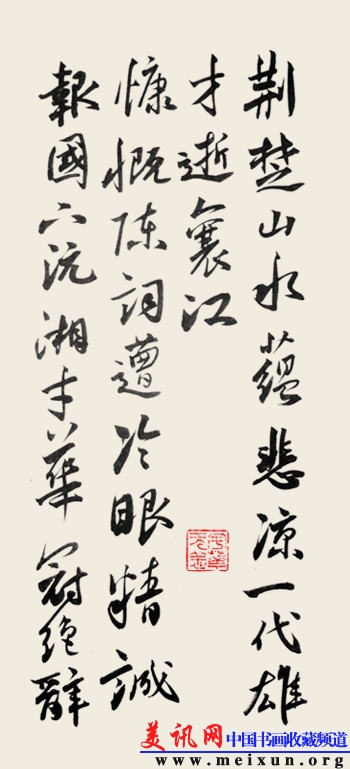 荆楚山水蕴悲凉一代雄
才逝襄江
慷慨陈詞遭冷眼精誠
報國下沅湘才華冠绝辭
美讯网 中国书画收藏频道
www.meixun.org